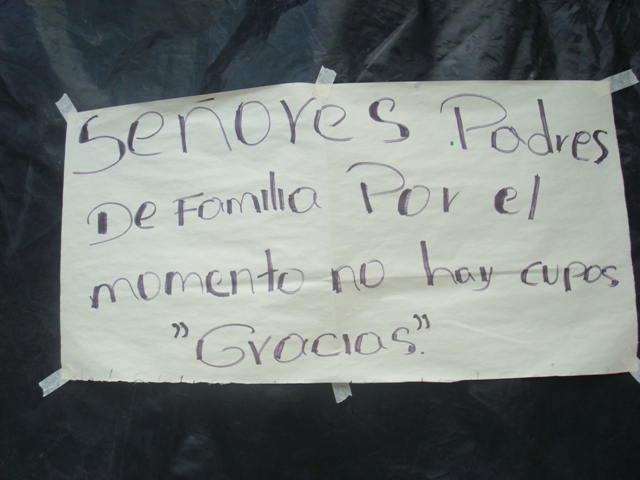 Señores Padres
De Familia Por el
momento no hay cupos
"Gracias".